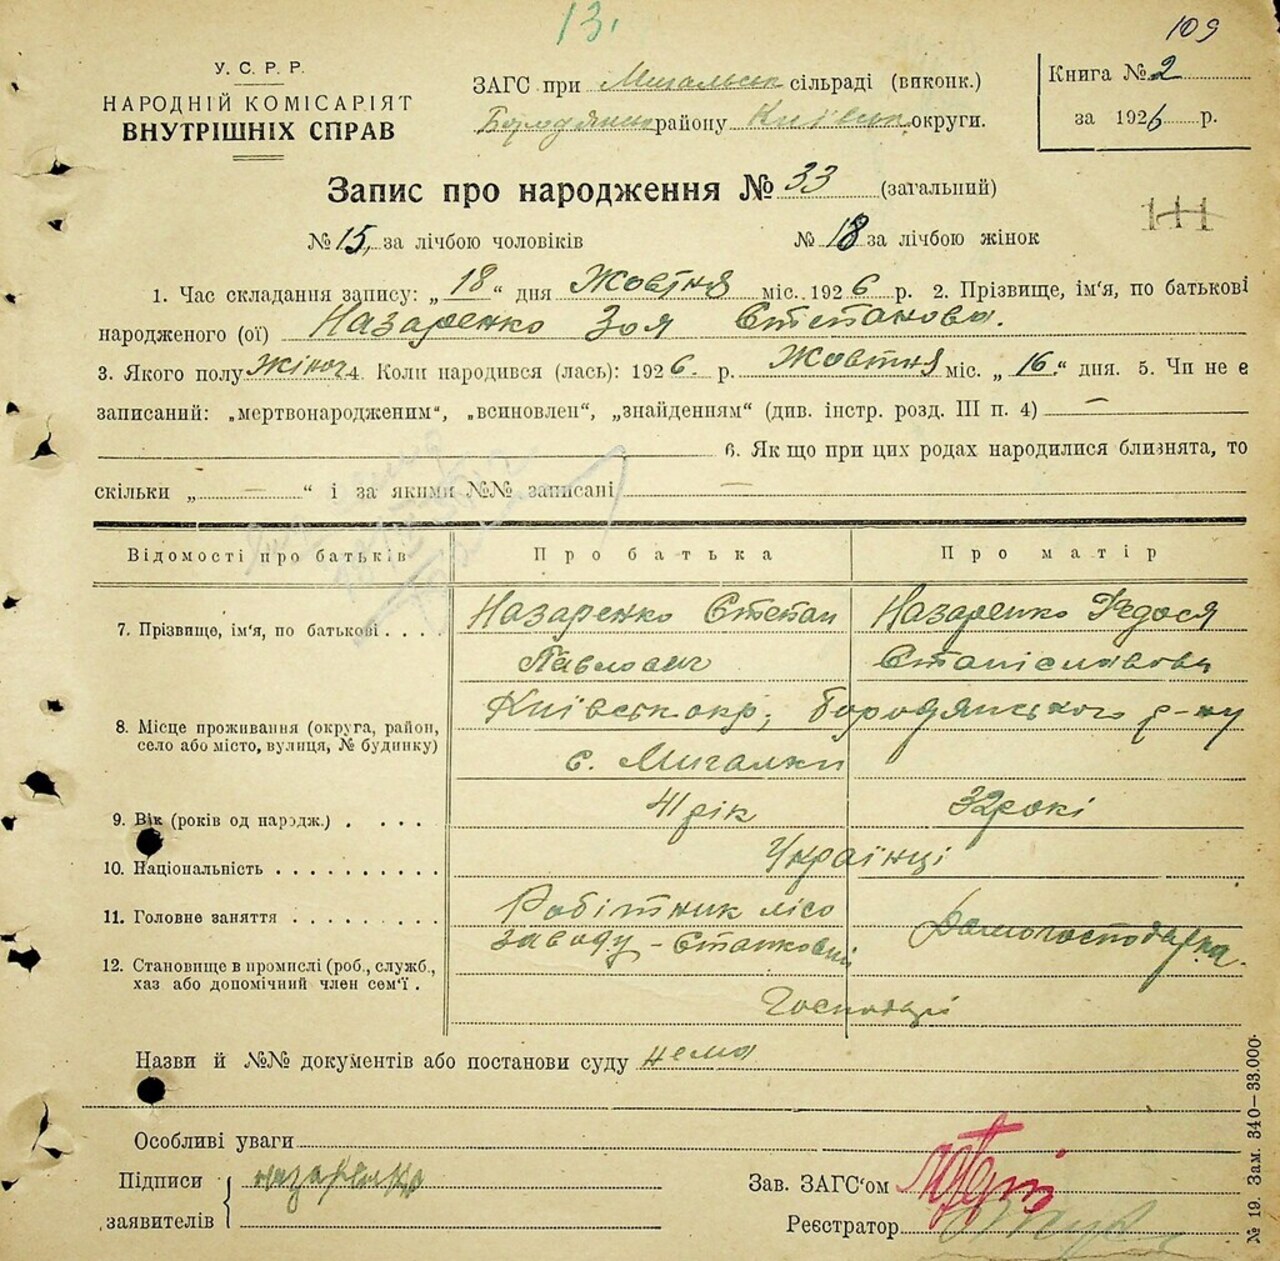 13.
109
У. С. Р. Р.
НАРОДНІЙ КОМІСАРІЯТ
ВНУТРІШНІХ СПРАВ
ЗАГС при Мигальськ сільраді (виконк.)
Бородянськ району Київськ округи.
Книга № 2
за 1926 р.
Запис про народження № 33 (загальний)
111
№ 15, за лічбою чоловіків № 18 за лічбою жінок
1. Час складання запису: „18“ дня Жовтня міс. 1926 р. 2. Прізвище, ім'я, по батькові
народженого (ої) Назаренко Зоя Степанова.
3. Якого полу Жіноч 4. Коли народився (лась): 1926. р. Жовтня міс. „16.“ дня. 5. Чи не є
записаний: „мертвонародженим“, „всиновлен“, „знайденням“ (див. інстр. розд. III п. 4) —
6. Як що при цих родах народилися близнята, то
скільки „ — “ і за якими №№ записані —
Відомості про батьків Про батька Про матір
7. Прізвище, ім'я, по батькові . . . . Назаренко Степан Назаренко Федося
Павлович Станіславовн
8. Місце проживання (округа, район, Київськ окр, Бородянського р-ну
село або місто, вулиця, № будинку) с. Мигалки
9. Вік (років од народж.) . . . . 41 рік 32 рокі
10. Національність . . . . . . . . . . Українці
11. Головне заняття . . . . . . . . . Робітник лісо Домогосподарка.
заводу - Станковий
12. Становище в промислі (роб., служб.,
хаз або допомічний член сем'ї . Господарі
Назви й №№ документів або постанови суду нема
Особливі уваги
Підписи Назаренко
заявителів
Зав. ЗАГС'ом
Реєстратор
№ 19. Зам. 340—33.000.